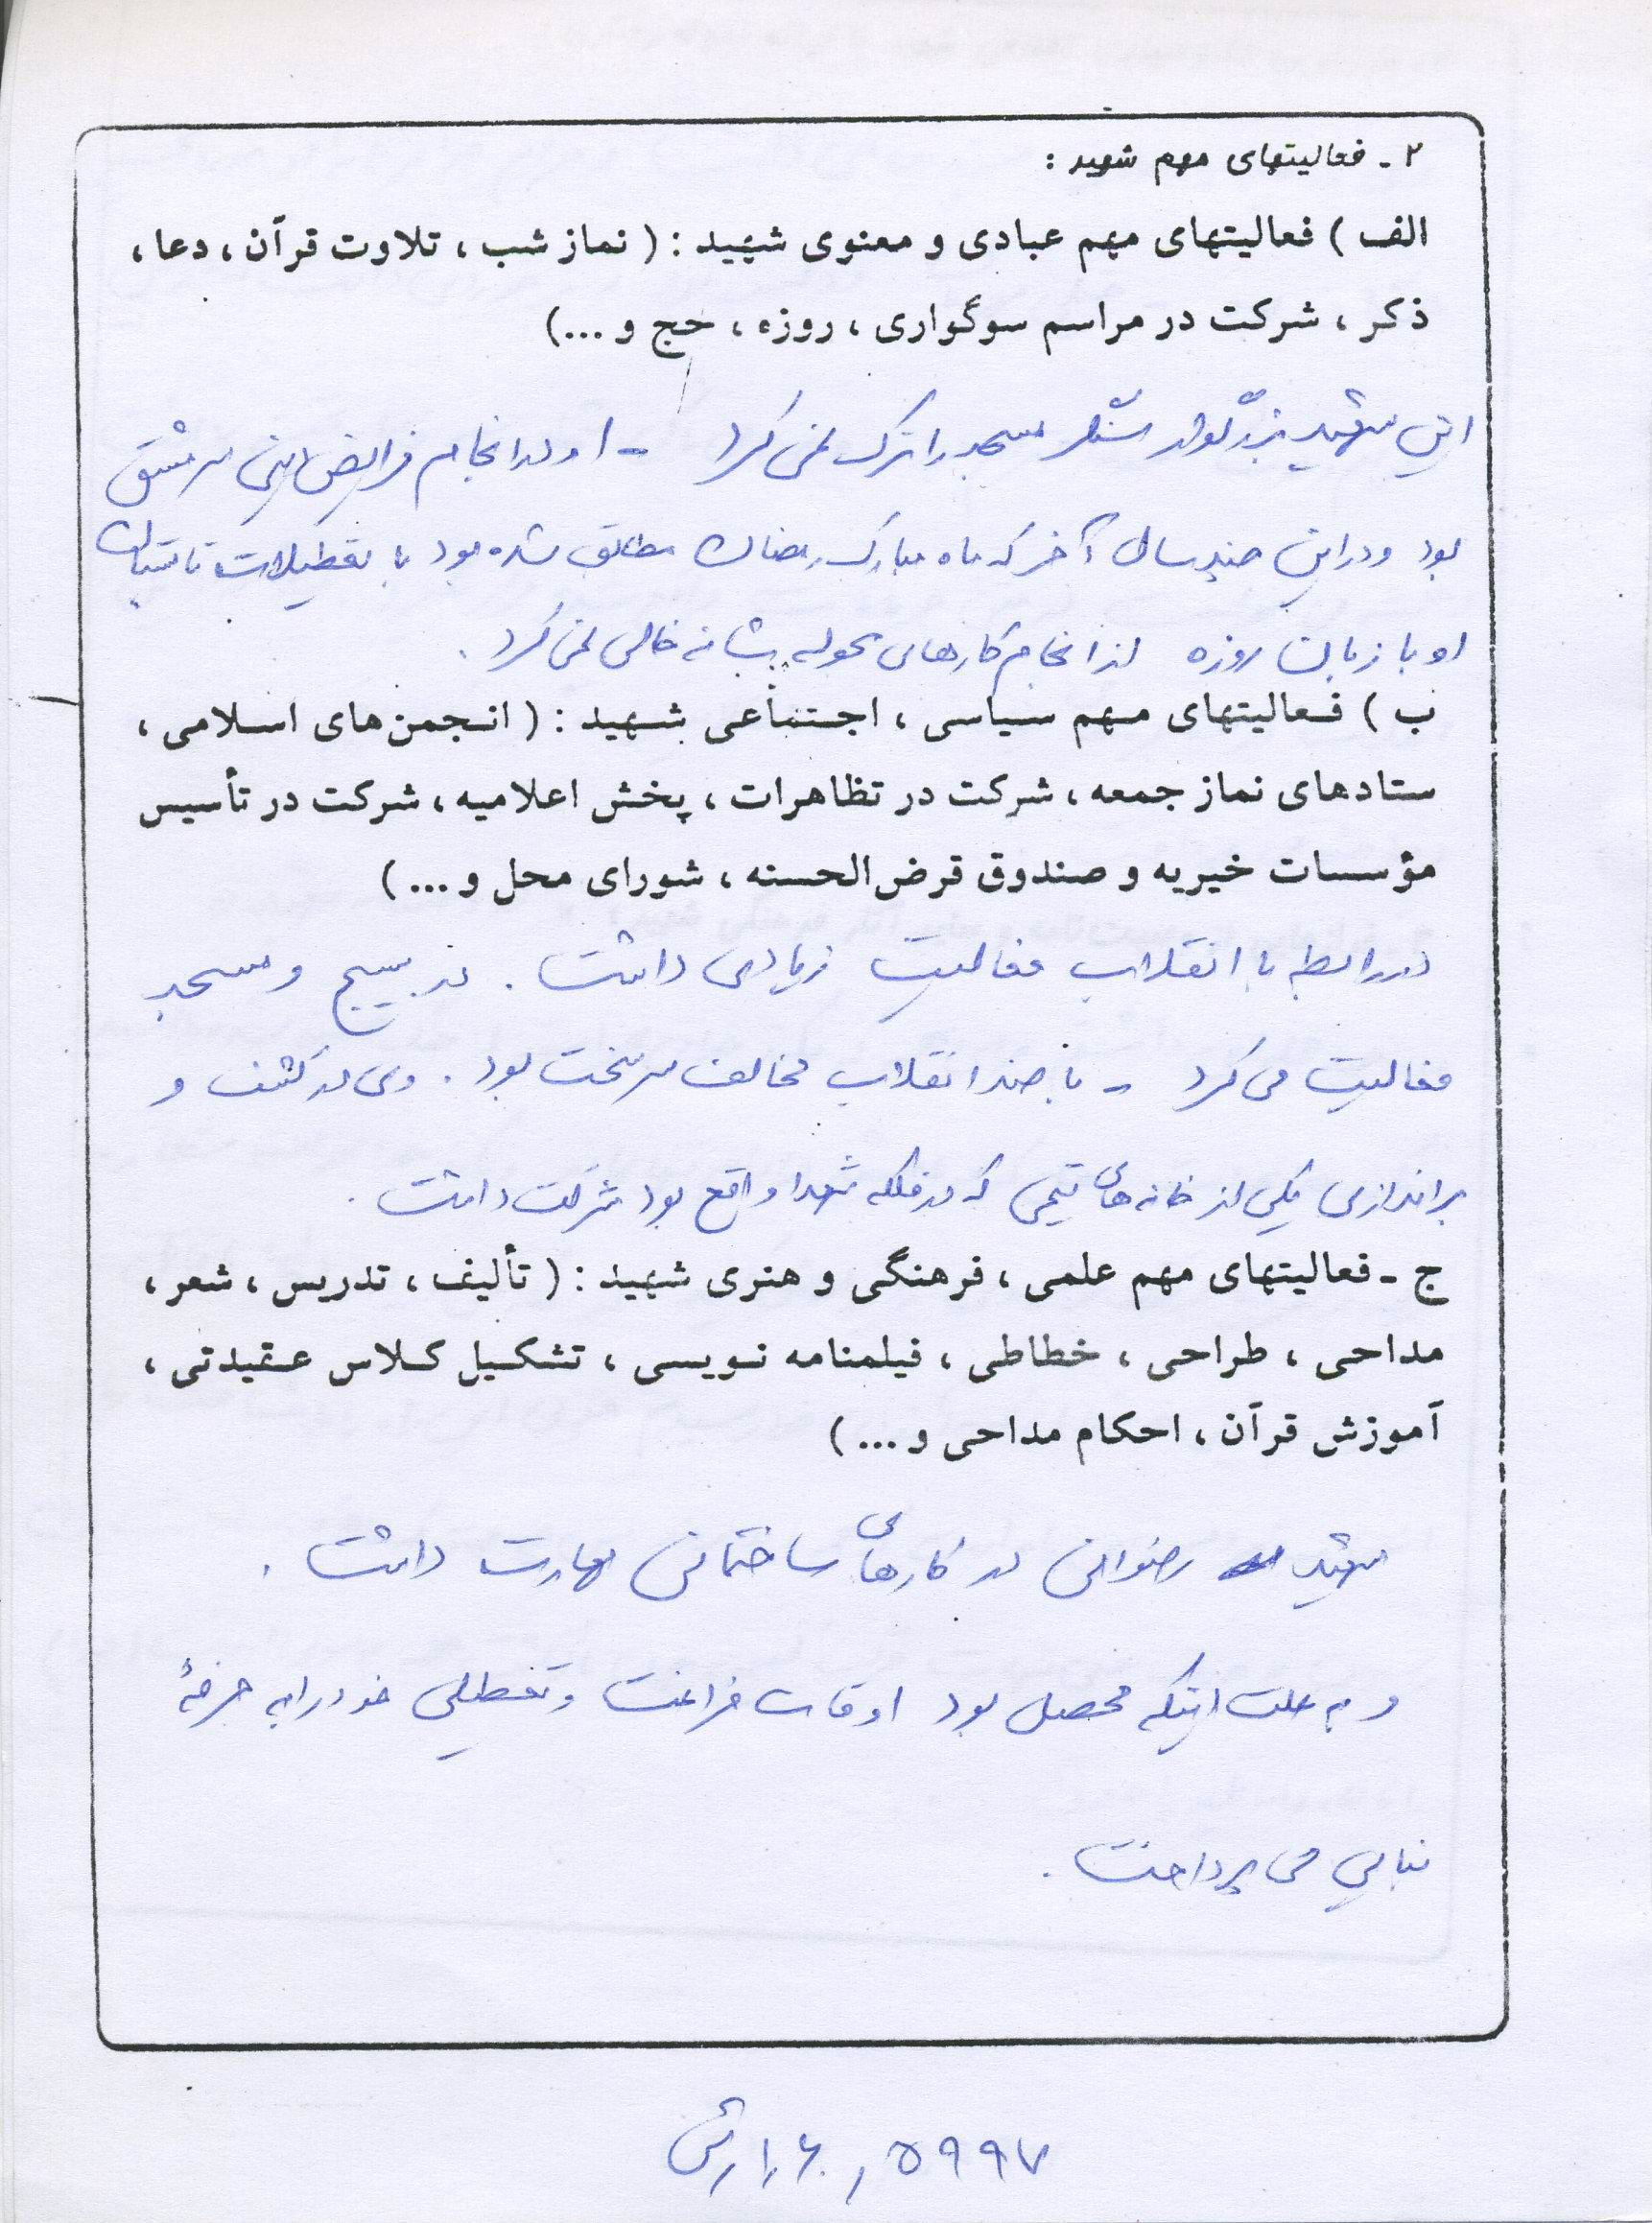 ۲ ـ فعالیتهای مهم شهید :
الف ) فعالیتهای مهم عبادی و معنوی شهید : ( نماز شب ، تلاوت قرآن ، دعا ،
ذکر ، شرکت در مراسم سوگواری ، روزه ، حج و ...)
این شهید بزرگوار سنگر مسجد را ترک نمی کرد - او در انجام فرایض دینی سرمشق
بود و در این چند سال آخر که ماه مبارک رمضان مطابق شده بود با تعطیلات تابستان
او با زبان روزه از انجام کارهای محوله شانه خالی نمی کرد .
ب ) فعالیتهای مهم سیاسی ، اجتماعی شهید : ( انجمن‌های اسلامی ،
ستادهای نماز جمعه ، شرکت در تظاهرات ، پخش اعلامیه ، شرکت در تأسیس
مؤسسات خیریه و صندوق قرض‌الحسنه ، شورای محل و ... )
در رابطه با انقلاب فعالیت زیادی داشت . در بسیج و مسجد
فعالیت می کرد - با ضد انقلاب مخالف سرسخت بود . وی در کشف و
براندازی یکی از خانه های تیمی که در فلکه شهدا واقع بود شرکت داشت .
ج ـ فعالیتهای مهم علمی ، فرهنگی و هنری شهید : ( تألیف ، تدریس ، شعر ،
مداحی ، طراحی ، خطاطی ، فیلمنامه نویسی ، تشکیل کلاس عقیدتی ،
آموزش قرآن ، احکام مداحی و ... )
شهید رضوانی در کارهای ساختمانی مهارت داشت .
و به علت اینکه محصل بود اوقات فراغت و تعطیلی خود را به حرفهٔ
بنایی می پرداخت .
۵۹۹۷